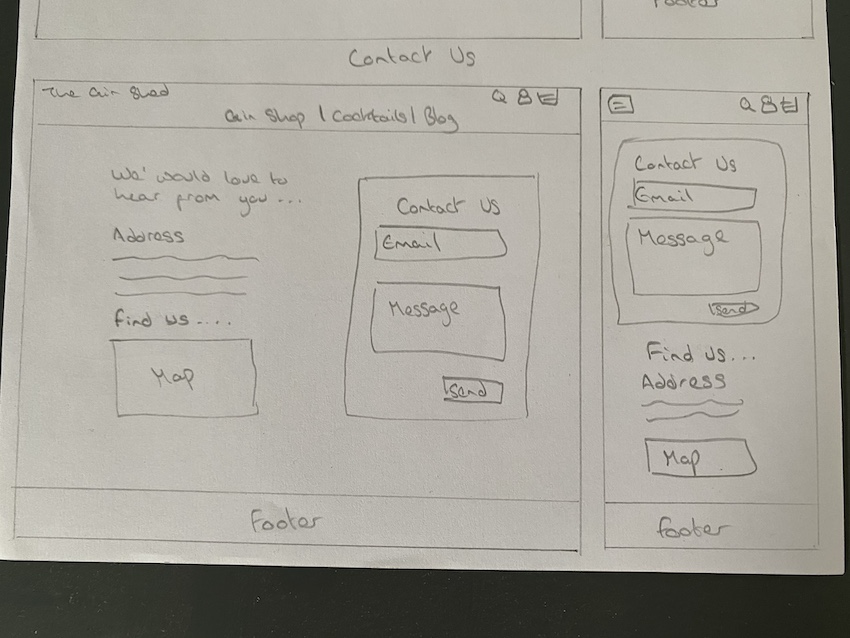 Footer
Contact Us
The Gin Shed
Gin Shop | Cocktails | Blog
We'would love to
hear from you ...
Address
Find us....
Map
Contact Us
Email
Message
Send
Footer
Contact Us
Email
Message
Send
Find Us...
Address
Map
footer